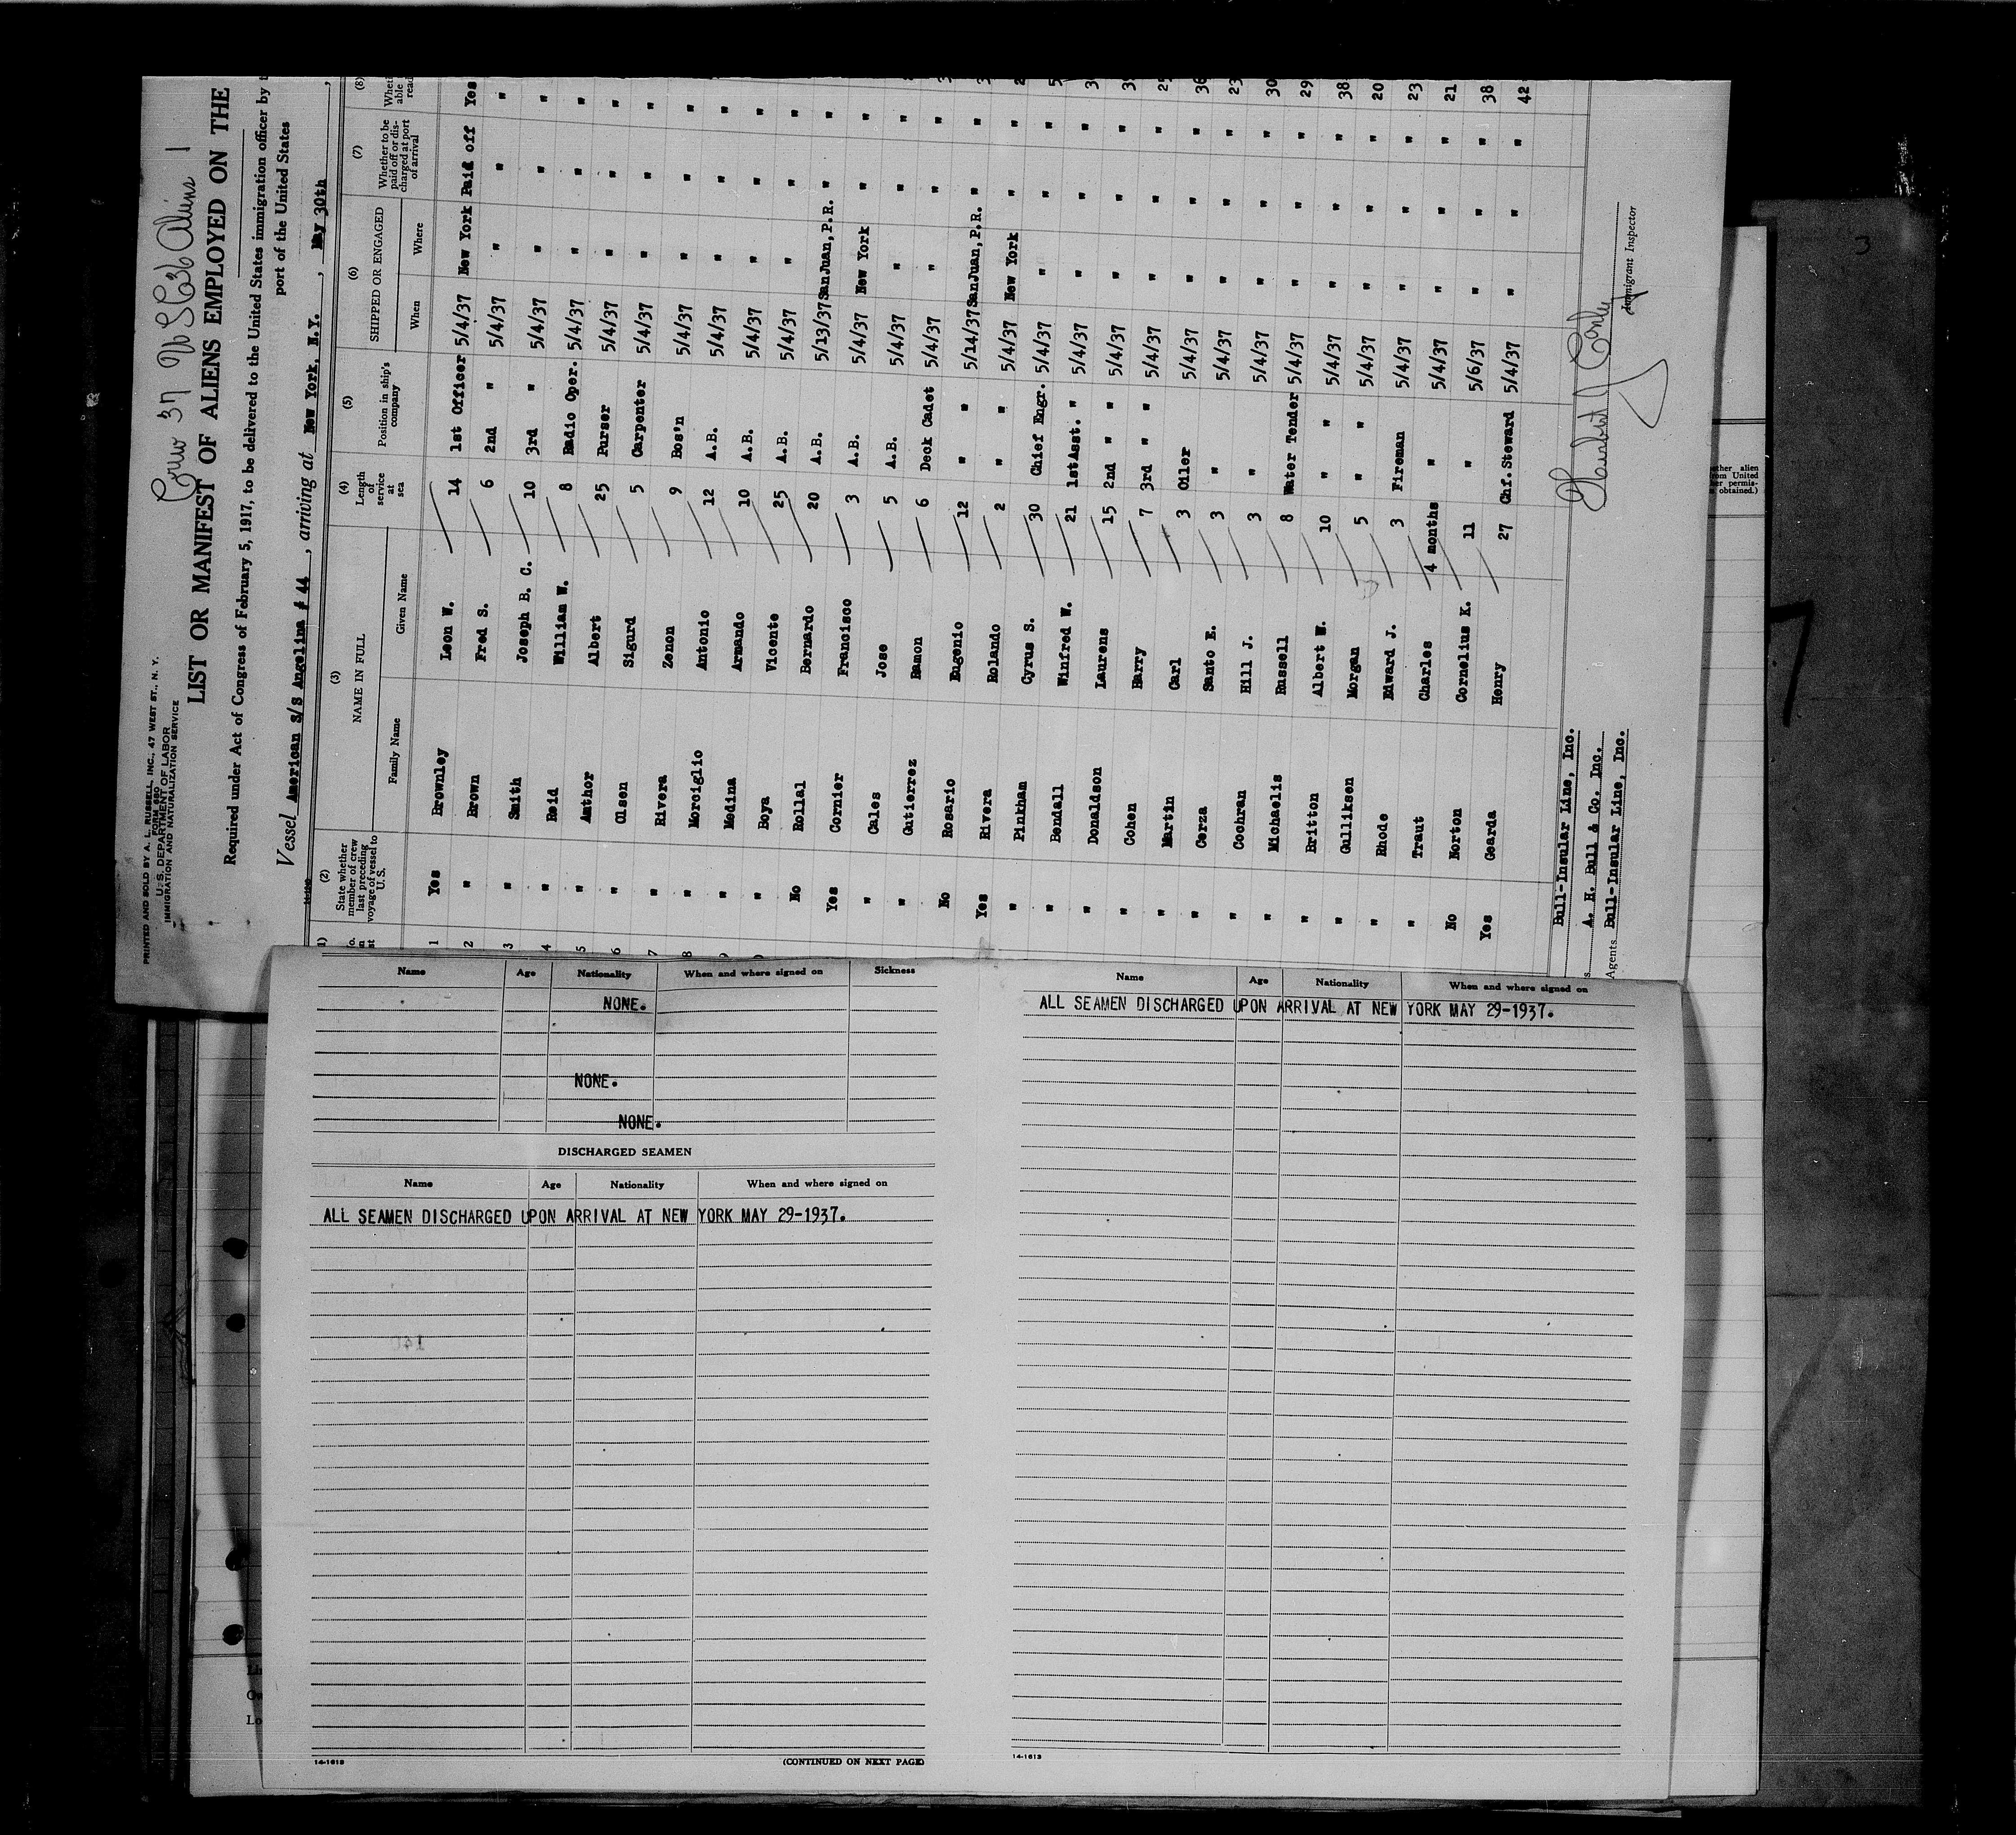 Crew 37 USC 36 Aliens 1
PRINTED AND SOLD BY A. L. RUSSELL, INC., 47 WEST ST., N. Y.
FORM 680
U. S. DEPARTMENT OF LABOR
IMMIGRATION AND NATURALIZATION SERVICE
LIST OR MANIFEST OF ALIENS EMPLOYED ON THE
Required under Act of Congress of February 5, 1917, to be delivered to the United States immigration officer by
port of the United States
Vessel American s/s Angelina # 44, arriving at New York, N.Y., May 30th,
(2) (3) (4) (5) (6) (7) (8)
State whether member of crew last preceding voyage of vessel to U.S. NAME IN FULL Length of service at sea Position in ship's company SHIPPED OR ENGAGED Whether to be paid off or discharged at port of arrival
Family Name Given Name When Where
1 Yes Brownley Leon W. 14 1st Officer 5/4/37 New York Paid off Yes
2 " Brown Fred S. 6 2nd " 5/4/37 " " "
3 " Smith Joseph B. C. 10 3rd " 5/4/37 " " "
4 " Reid William W. 8 Radio Oper. 5/4/37 " " "
5 " Amthor Albert 25 Purser 5/4/37 " " "
6 " Olsen Sigurd 5 Carpenter 5/4/37 " " "
7 " Rivera Zenon 9 Bos'n 5/4/37 " " "
8 " Morciglio Antonio 12 A.B. 5/4/37 " " "
9 " Medina Armando 10 A.B. 5/4/37 " " "
" Boya Vicente 25 A.B. 5/4/37 " " "
No Rollal Bernardo 20 A.B. 5/13/37 SanJuan,P.R. " "
Yes Cornier Francisco 3 A.B. 5/4/37 New York " "
" Cales Jose 5 A.B. 5/4/37 " " "
" Gutierrez Ramon 6 Deck Cadet 5/4/37 " " "
No Rosario Eugenio 12 " " 5/14/37 SanJuan,P.R. " "
Yes Rivera Rolando 2 " " 5/4/37 New York " "
" Pinkham Cyrus S. 30 Chief Engr. 5/4/37 " " "
" Bendall Winfred W. 21 1stAsst. " 5/4/37 " " "
" Donaldson Laurens 15 2nd " " 5/4/37 " " "
" Cohen Harry 7 3rd " " 5/4/37 " " "
" Martin Carl 3 Oiler 5/4/37 " " "
" Cerza Santo E. 3 " 5/4/37 " " " 23
" Cochran Hill J. 3 " 5/4/37 " " " 30
" Michaelis Russell 8 Water Tender 5/4/37 " " " 29
" Britton Albert W. 10 " " 5/4/37 " " " 38
" Gulliksen Morgan 5 " " 5/4/37 " " " 20
" Rhode Edward J. 3 Fireman 5/4/37 " " " 23
" Traut Charles 4 months " 5/4/37 " " " 21
No Norton Cornelius K. 11 " 5/6/37 " " " 38
Yes Gearda Henry 27 Chf.Steward 5/4/37 " " " 42
Bull-Insular Line, Inc.
A. H. Bull & Co. Inc.
Agents Bull-Insular Line, Inc.
Immigrant Inspector
Name Age Nationality When and where signed on Sickness
NONE.
NONE.
NONE.
DISCHARGED SEAMEN
Name Age Nationality When and where signed on
ALL SEAMEN DISCHARGED UPON ARRIVAL AT NEW YORK MAY 29-1937.
14-1613 (CONTINUED ON NEXT PAGE)
Name Age Nationality When and where signed on
ALL SEAMEN DISCHARGED UPON ARRIVAL AT NEW YORK MAY 29-1937.
14-1613
3
7